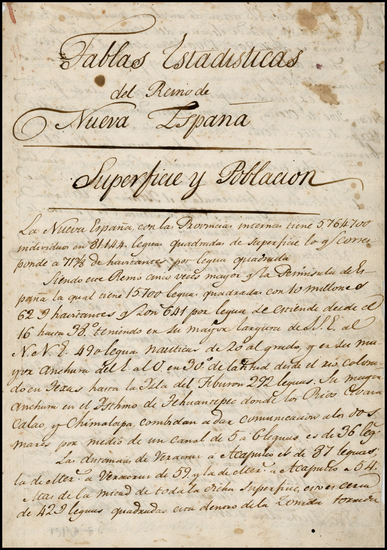 Tablas Estadisticas
del Reino de
Nueva España
Superficie y Poblacion
La Nueva España con las Provincias internas tiene 5764700
individuos en 81144 leguas quadradas de Superficie lo q.e corres
ponde a 71⅛ de havitantes por legua quadrada
Siendo este Reino cinco veces mayor q.e la Peninsula de Es
paña la qual tiene 15700 leguas quadradas con 10 millones
62 havitantes y son 641 por legua se estiende desde el
16 hasta 38° teniendo en su mayor largura de S.S.E. al
N.N.E. 490 leguas nauticas de 20 al grado, y en su ma
yor anchura del E al O en 30° de latitud desde el rio colora
do en Texas hasta la Isla del Tiburon 292 leguas. Su menor
anchura en el Isthmo de Tehuantepec donde los Rios
y Chimalapa, combidan a dar comunicacion a los dos
mares por medio de un canal de 5 a 6 leguas es de 36 leg
La distancia de Veracruz a Acapulco es de 87 leguas,
la de Mex.co a Veracruz de 59 y la de Mex.co a Acapulco a 54.
Mas de la mitad de toda la dicha Superficie, esto es cerca
de 42 leguas quadradas esta dentro de la Zona